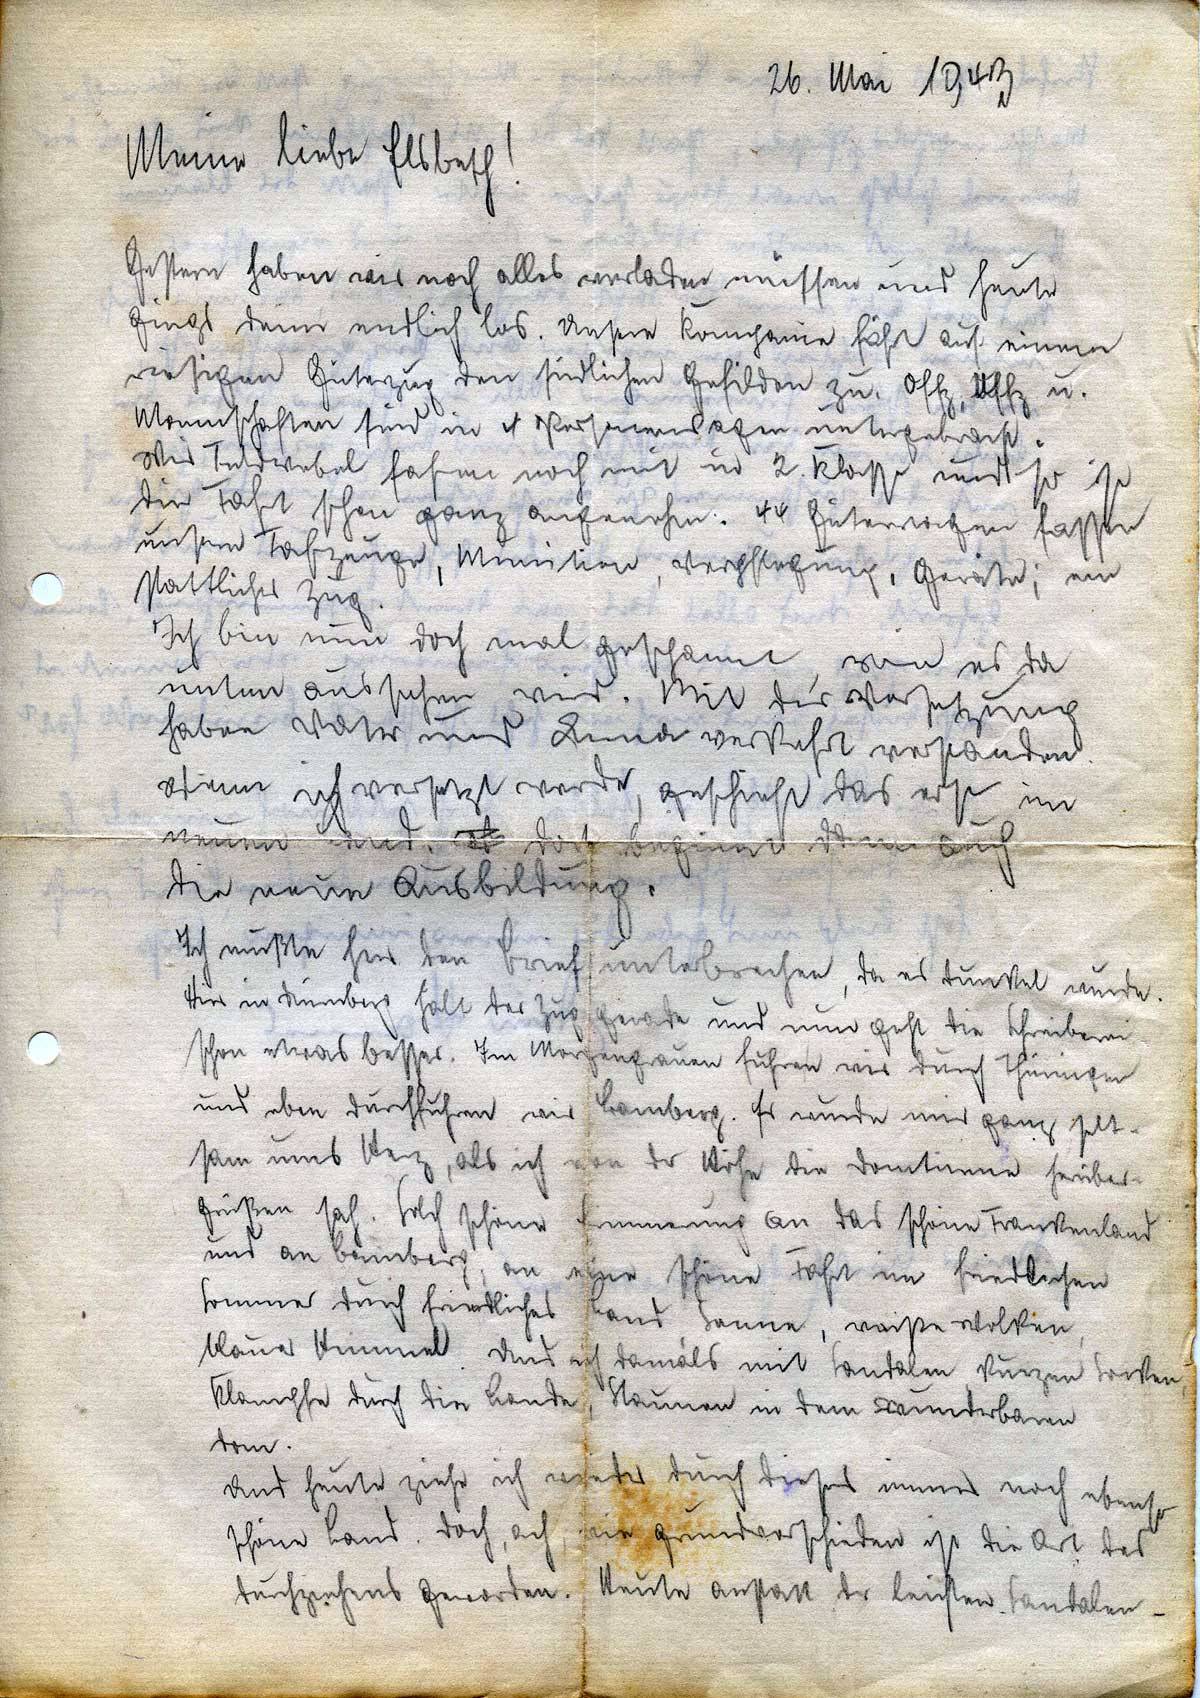 26. Mai 1943
Meine liebe Elsbeth!
Gestern haben wir noch alles verladen müssen und heute
gings dann endlich los. Unsere Kompanie fährt auf einem
riesigen Güterzug den südlichen Gefilden zu. Offz, Uffz u.
Mannschaften sind in 4 Personenwagen untergebracht.
Wir Feldwebel fahren noch mit in 2. Klasse und so ist
die Fahrt schon ganz angenehm. 44 Güterwagen fassen
unsere Fahrzeuge, Munition, Verpflegung, Geräte; ein
stattlicher Zug.
Ich bin nun doch mal gespannt, wie es da
unten aussehen wird. Mit der Versetzung
haben Vater und verkehrt verstanden.
Wenn ich versetzt werde, geschieht das erst im
neuen Land. dort beginnt dann auch
die neue Ausbildung.
Ich mußte hier den Brief unterbrechen, da es dunkel wurde.
Hier in Nürnberg hält der Zug gerade und nun geht die Schreiberei
schon etwas besser. Im Morgengrauen fuhren wir durch Thüringen
und eben durchfuhren wir Bamberg. Es wurde mir ganz selt-
sam ums Herz, als ich von der Höhe die Domtürme herüber-
grüßen sah. Solch schöne Erinnerung an das schöne Frankenland
und an Bamberg, an eine schöne Fahrt im friedlichen
Sommer durch friedliches Land Sonne, weiße Wolken,
blauer Himmel. Und ich damals mit Sandalen kurzen Socken,
Klampfe durch die Lande, Staunen in dem wunderbaren
Dom.
Und heute ziehe ich wieder durch dieses immer noch ebenso
schöne Land. Doch, ach, wie grundverschieden ist die Art des
Durchziehens geworden. Heute anstatt der leichten Sandalen -